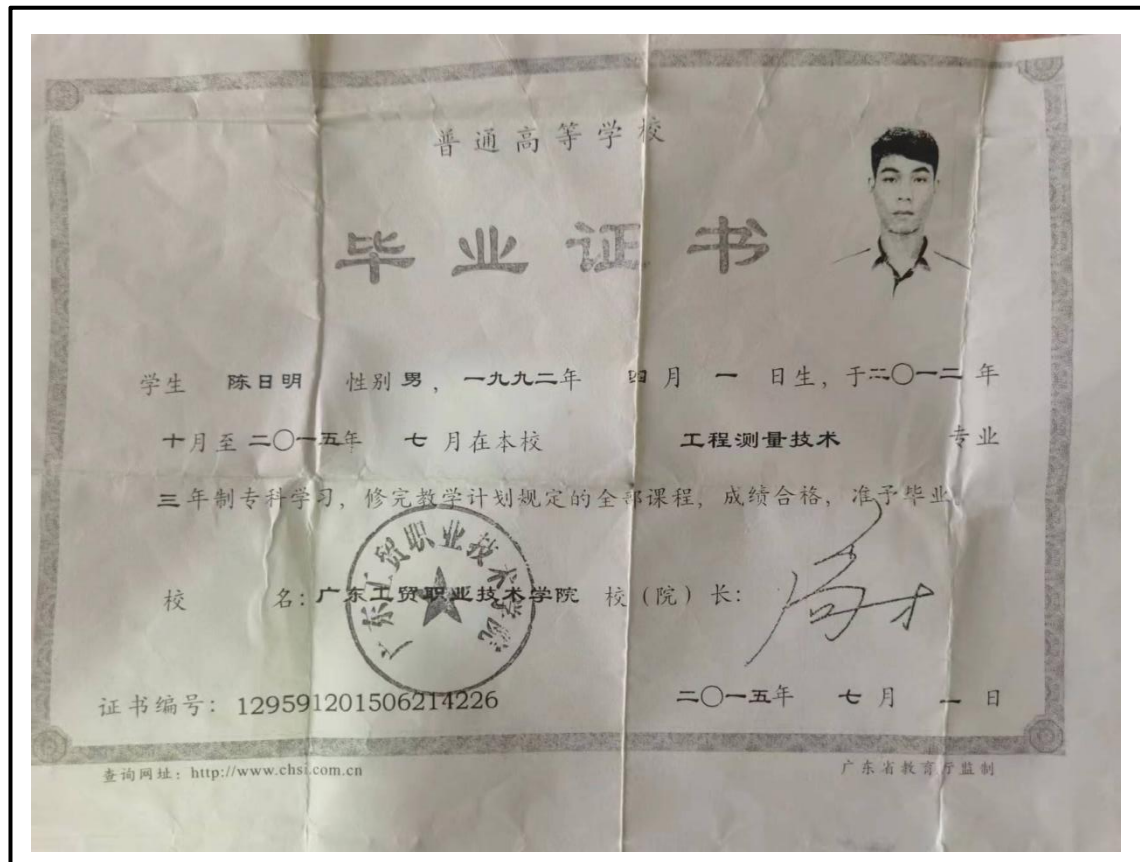 普通高等学校
毕业证书
学生 陈日明 性别 男, 一九九二年 四 月 一 日生, 于二〇一二 年
十月至 二〇一五年 七 月在本校 工程测量技术 专业
三年制专科学习, 修完教学计划规定的全部课程, 成绩合格, 准予毕业
广东工贸职业技术学院
校 名: 广东工贸职业技术学院 校 (院) 长:
证书编号: 129591201506214226 二〇一五年 七 月 一 日
查询网址: http://www.chsi.com.cn 广东省教育厅监制